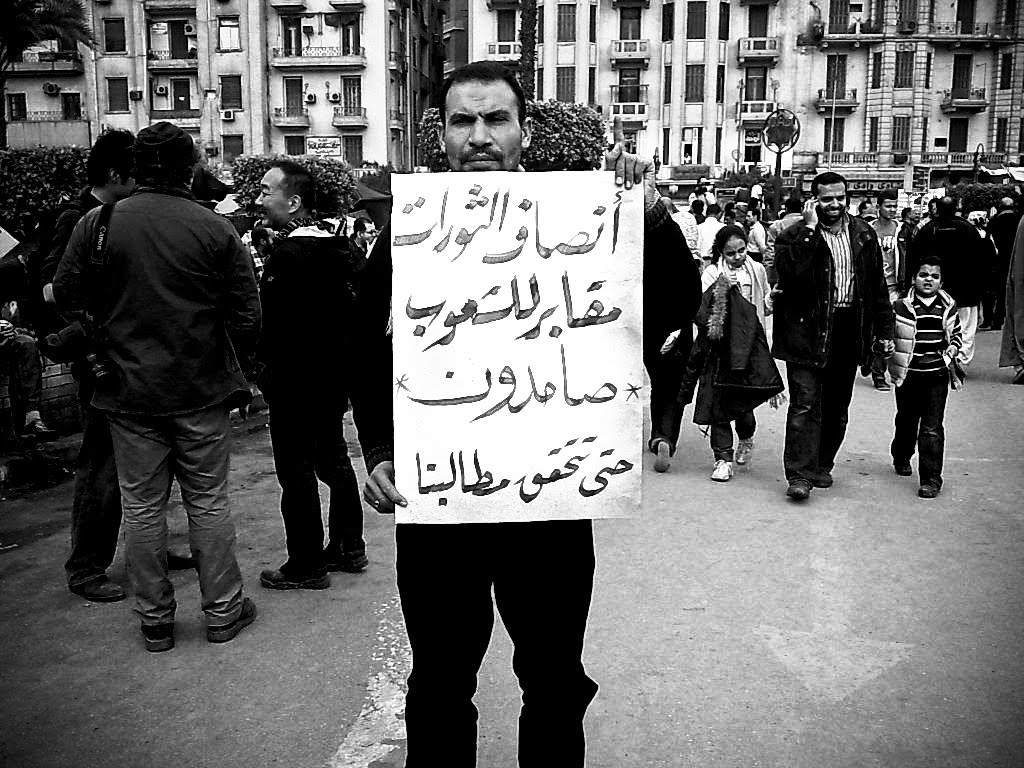 أنصاف الثورات
مقابر للشعوب
* صامدون *
حتى تتحقق مطالبنا
Canon